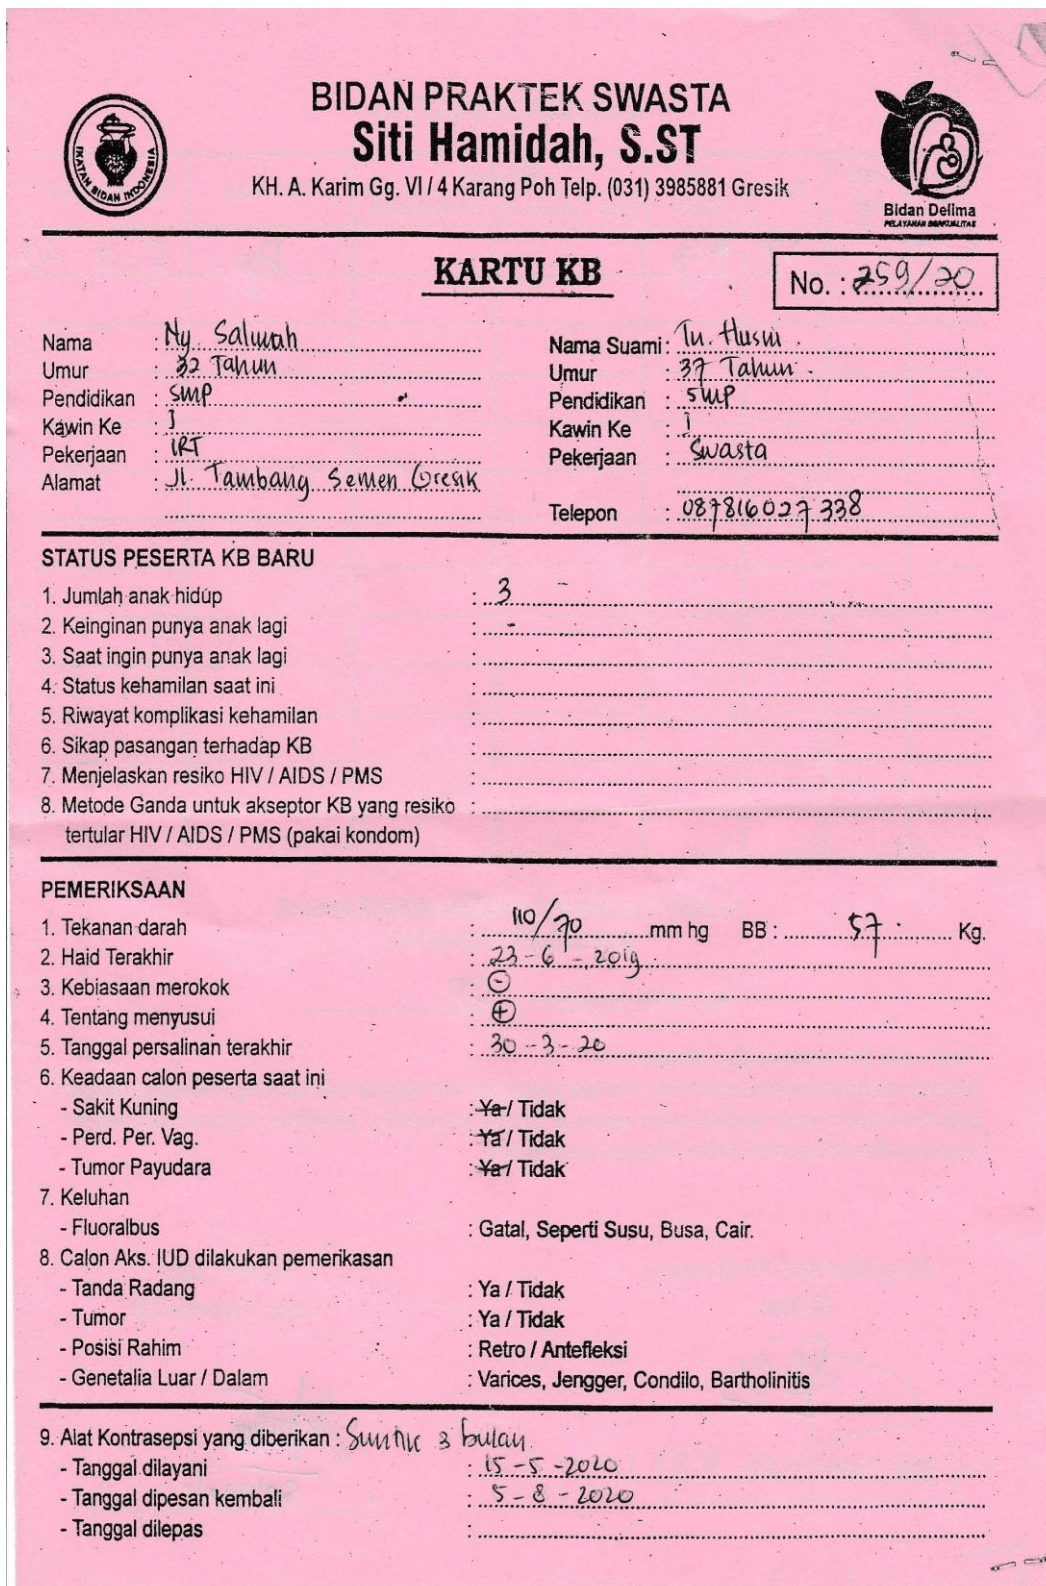 BIDAN PRAKTEK SWASTA
Siti Hamidah, S.ST
KH. A. Karim Gg. VI / 4 Karang Poh Telp. (031) 3985881 Gresik
IKATAN BIDAN INDONESIA
Bidan Delima
PELAYANAN BERKUALITAS
KARTU KB
No. : 259/20
Nama : Ny. Salmah
Umur : 32 Tahun
Pendidikan : SMP
Kawin Ke : I
Pekerjaan : IRT
Alamat : Jl. Tambang Semen Gresik
Nama Suami : Tn. Husni
Umur : 37 Tahun
Pendidikan : SMP
Kawin Ke : I
Pekerjaan : Swasta
Telepon : 087816027338
STATUS PESERTA KB BARU
1. Jumlah anak hidup : 3
2. Keinginan punya anak lagi : -
3. Saat ingin punya anak lagi :
4. Status kehamilan saat ini :
5. Riwayat komplikasi kehamilan :
6. Sikap pasangan terhadap KB :
7. Menjelaskan resiko HIV / AIDS / PMS :
8. Metode Ganda untuk akseptor KB yang resiko :
tertular HIV / AIDS / PMS (pakai kondom)
PEMERIKSAAN
1. Tekanan darah : 110/70 mm hg BB : 57 Kg.
2. Haid Terakhir : 23-6-2019
3. Kebiasaan merokok : (-)
4. Tentang menyusui : (+)
5. Tanggal persalinan terakhir : 30-3-20
6. Keadaan calon peserta saat ini
- Sakit Kuning : Ya / Tidak
- Perd. Per. Vag. : Ya / Tidak
- Tumor Payudara : Ya / Tidak
7. Keluhan
- Fluoralbus : Gatal, Seperti Susu, Busa, Cair.
8. Calon Aks. IUD dilakukan pemerikasan
- Tanda Radang : Ya / Tidak
- Tumor : Ya / Tidak
- Posisi Rahim : Retro / Antefleksi
- Genetalia Luar / Dalam : Varices, Jengger, Condilo, Bartholinitis
9. Alat Kontrasepsi yang diberikan : Suntik 3 bulan
- Tanggal dilayani : 15-5-2020
- Tanggal dipesan kembali : 5-8-2020
- Tanggal dilepas :